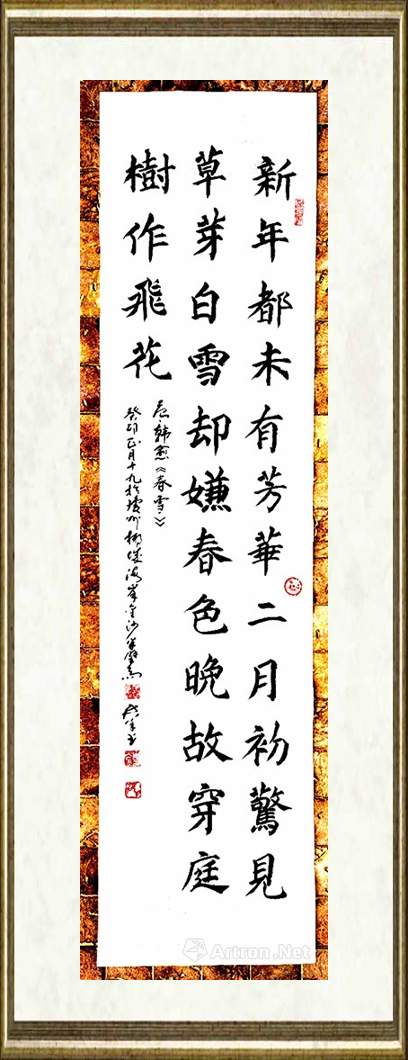 新年都未有芳華二月初驚見
草芽白雪却嫌春色晚故穿庭
樹作飛花
韩愈《春雪》
癸卯正月十九於
Artron.Net